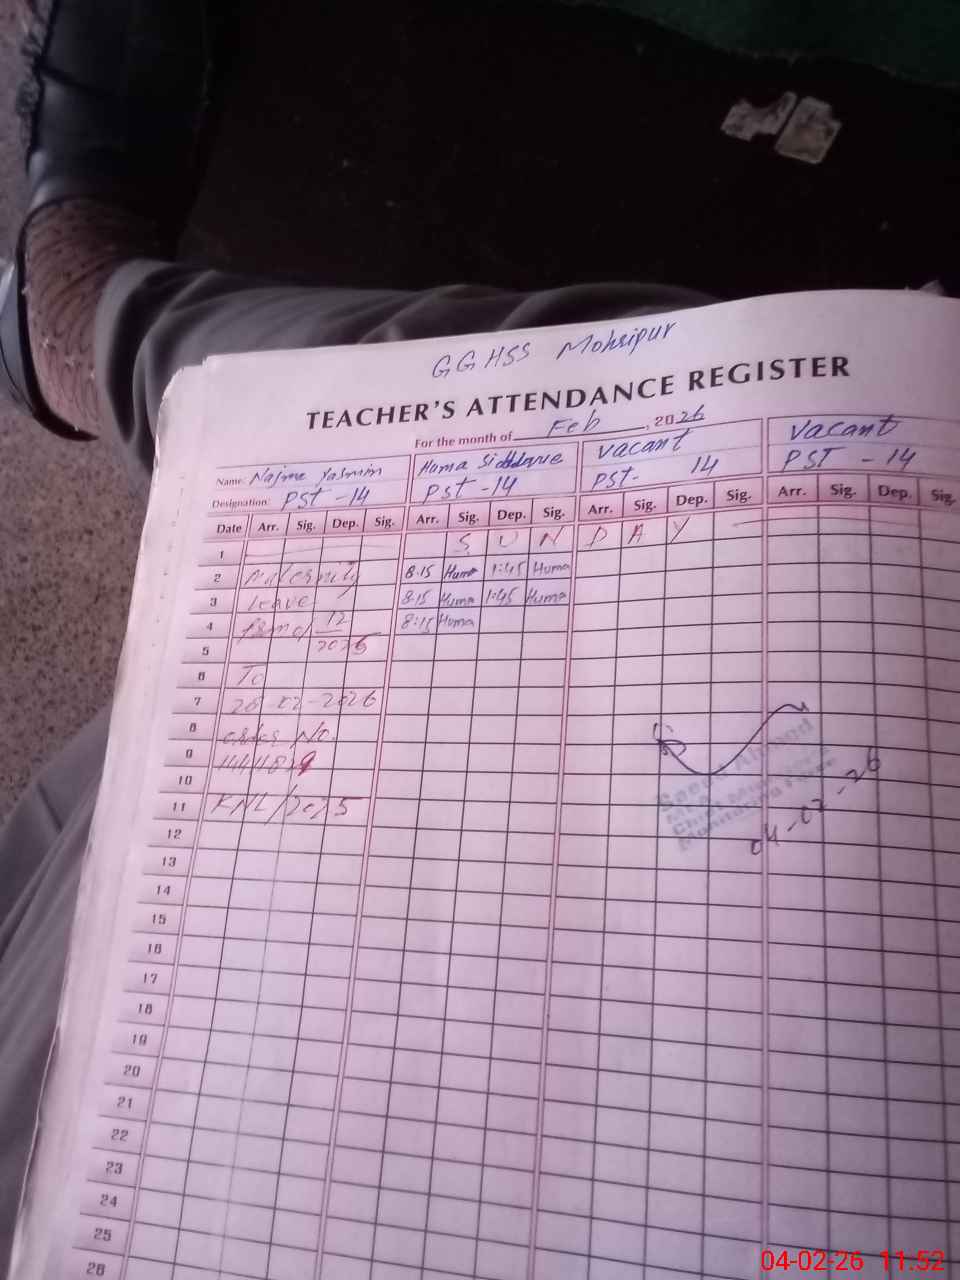 GGHSS Mohsipur
TEACHER'S ATTENDANCE REGISTER
For the month of Feb, 2026
Name: Najma Yasmin Huma Siddique vacant vacant
Designation: PST-14 PST-14 PST-14 PST-14
Date Arr. Sig. Dep. Sig. Arr. Sig. Dep. Sig. Arr. Sig. Dep. Sig. Arr. Sig. Dep. Sig.
1 S U N D A Y
2 Maternity 8.15 Huma 1:45 Huma
3 leave 8.15 Huma 1:45 Huma
4 from 12 8:15 Huma
5 2025
6 To
7 28-02-2026
8 order No.
9
10
11 KNL/2025
Saeed Ahmed
MEA
Chief Minister's
Monitoring Force
04-02-26
12
13
14
15
16
17
18
19
20
21
22
23
24
25
26
04-02-26 11.52